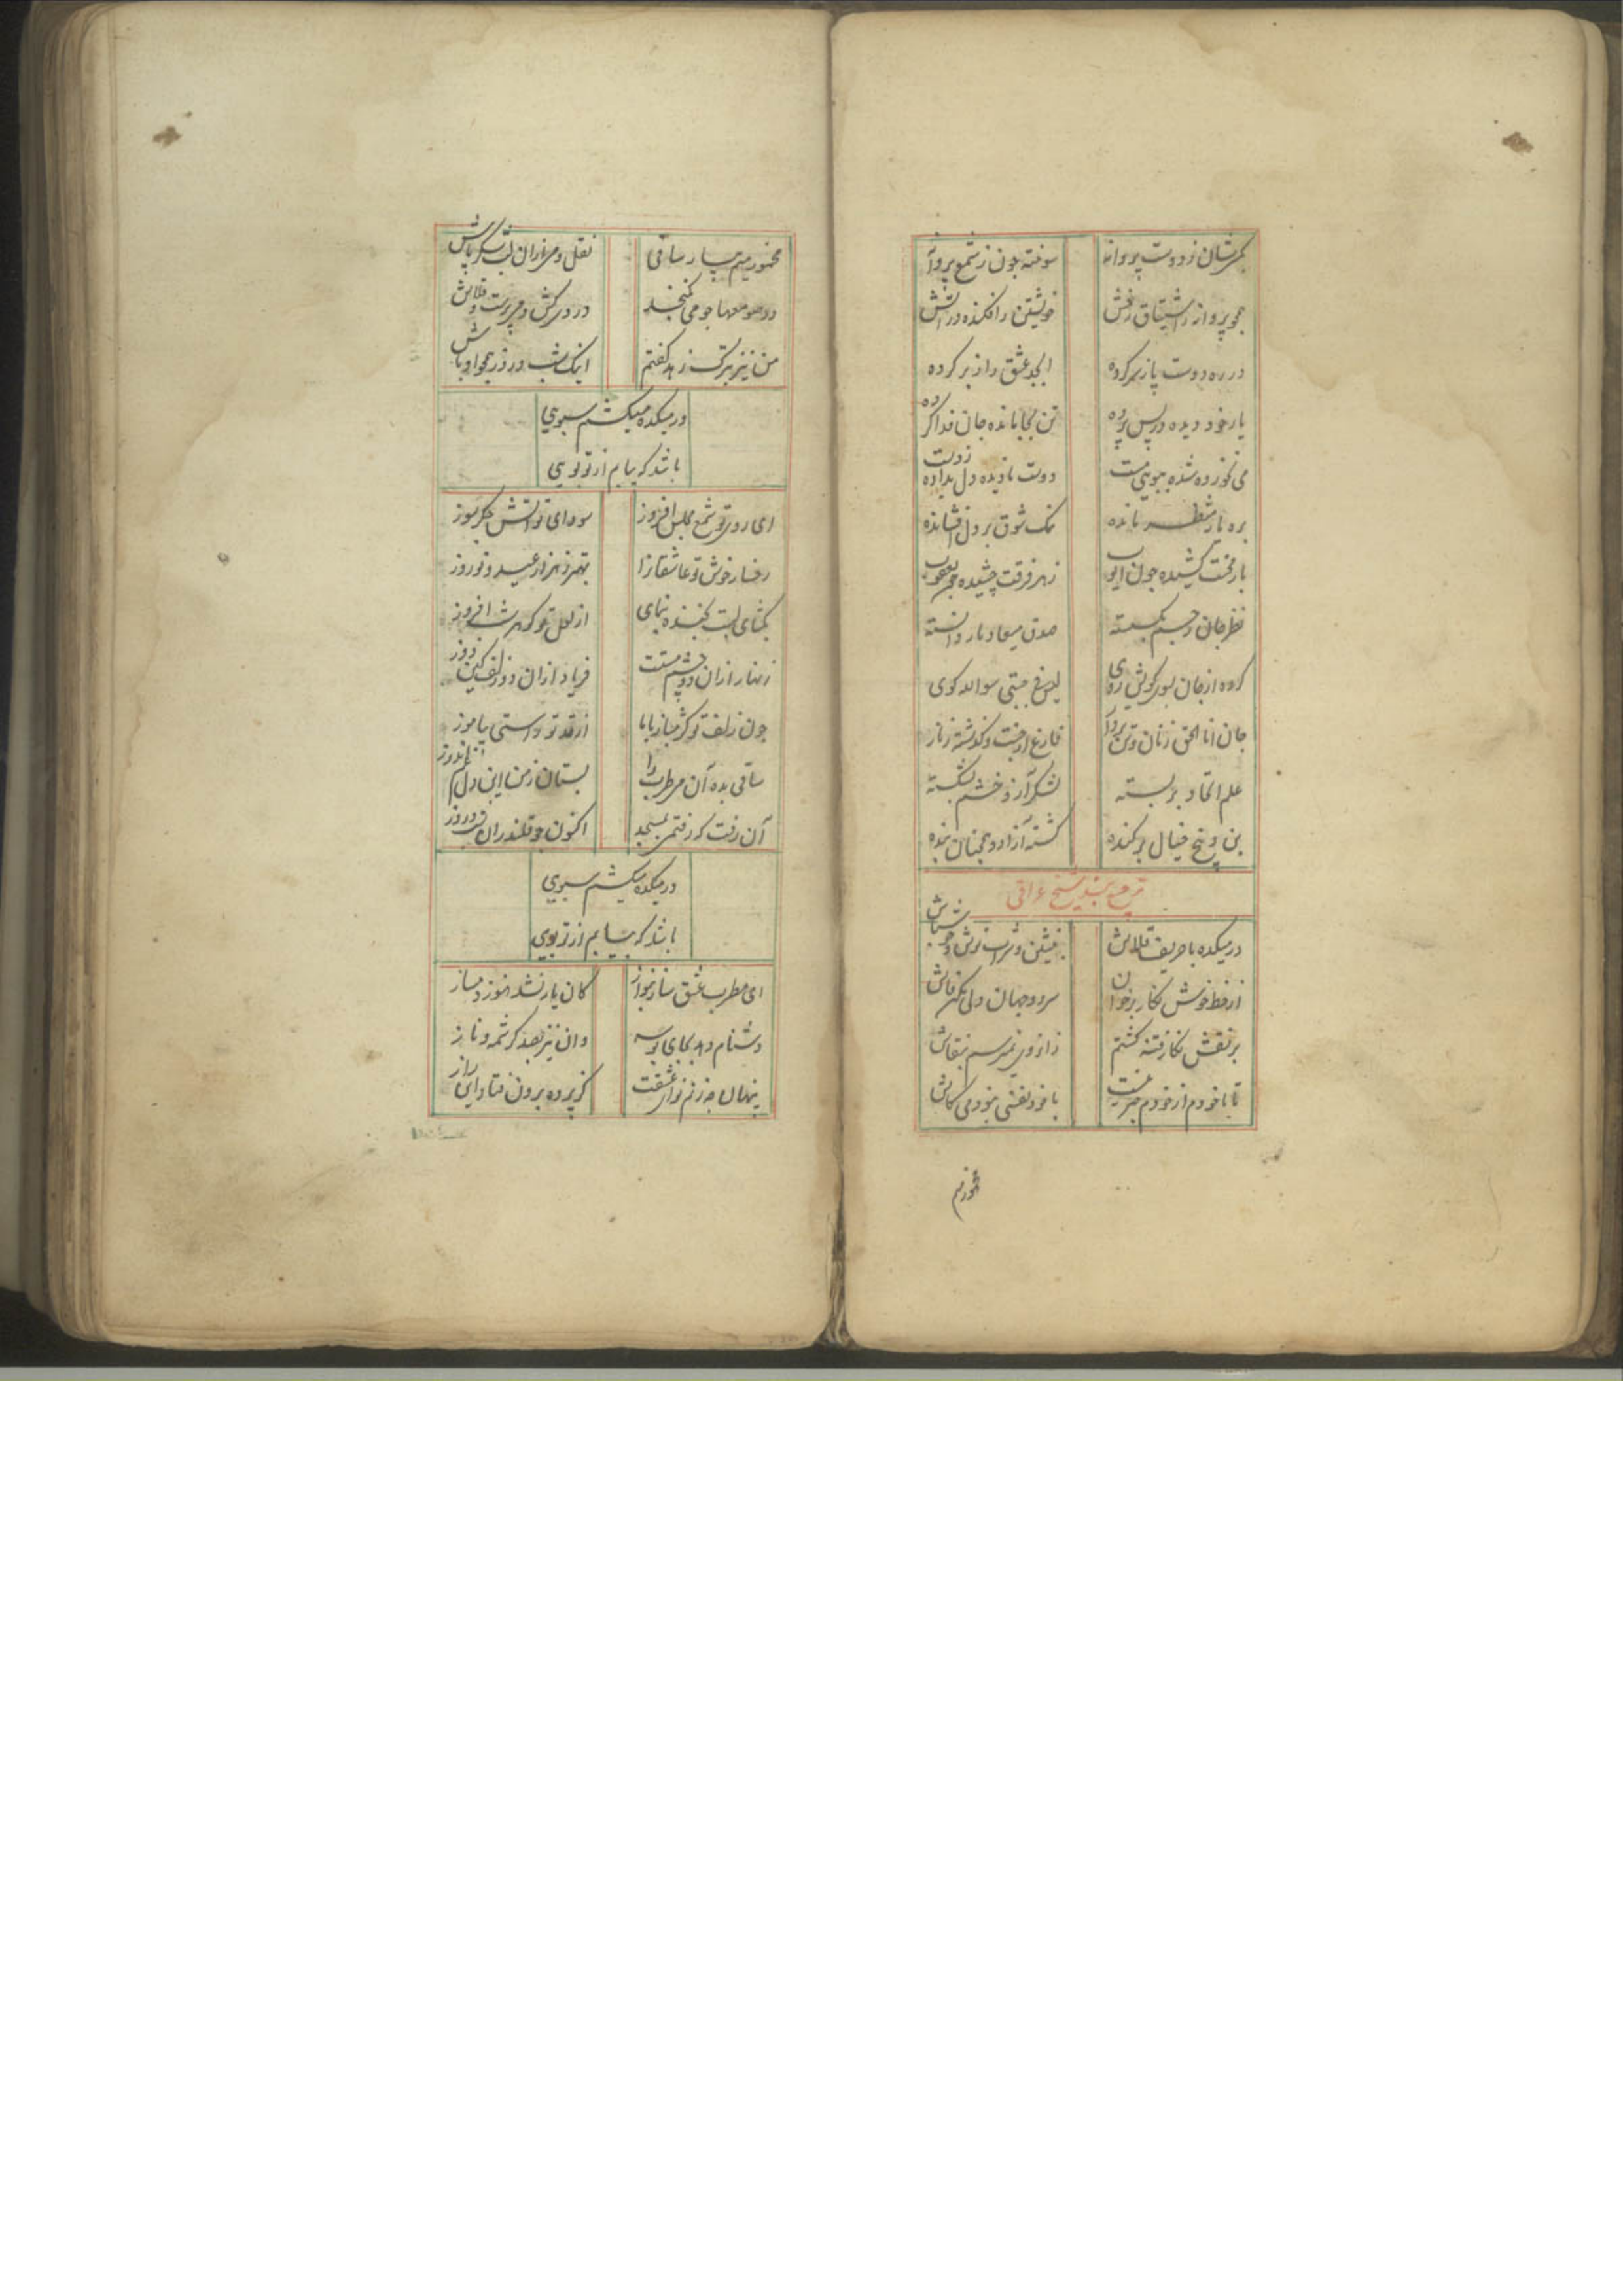 کمرشان ز دوست پروانه سوخته چون ز شمع پروانه
همچو پروانه ز اشتیاق رخش خویشتن را فکنده در آتش
در ره دوست پا ز سر کرده ابجد عشق را ز بر کرده
یار خود دیده در پس پرده تن بجا مانده جان فدا کرده
می نخورده شده ببویی مست دوست نادیده دل بداده ز دست
بره یار منتظر مانده نمک شوق بر دل افشانده
بار محنت کشیده چون ایوب زهر فرقت چشیده چون یعقوب
نظر جان ز جسم بکسسته صدق میعاد یار دانسته
کرده از جان بسوی کویش روی لیس فی جبتی سوا الله کوی
جان انا الحق زنان و تن بر دار فارغ از جنت و کذشته ز نار
علم اتحاد بر بسته لشکر آز و خشم بشکسته
بن و بیخ خیال بر کنده کشته آزاد و همچنان بنده
ترجیع بند شیخ عراقی
در میکده با حریف قلاش بنشین و شراب نوش و خوش باش
از خط خوش نکار بر خوان سر دو جهان ولی مکن فاش
بر نقش نکار فتنه کشتم زان روی نمیرسم بنقاش
تا با خودم از خودم خبر نیست با خود نفسی نبودمی کاش
مخمور میم
مخمور میم بیار ساقی نقل و می از ان لب شکر پاش
در صومعها چو می نکنجد دردی کش و می پرست و قلاش
من نیز بترک زهد کفتم اینک شب و روز همچو اوباش
در میکده میکشم سبویی
باشد که بیابم از تو بویی
ای روی تو شمع مجلس افروز سودای تو آتش جکر سوز
رخسار خوش تو عاشقانرا بهتر ز هزار عید و نوروز
بکشای لبت بخنده بنمای از لعل تو کوهر شب افروز
زنهار ازان دو چشم مستت فریاد ازان دو زلف کین دوز
چون زلف تو کژ مباز باما از قد تو راستی بیاموز
ساقی بده آن می طرب را بستان ز من این دل غم اندوز
آن رفت که رفتمی بمسجد اکنون چو قلندران شب و روز
در میکده میکشم سبویی
باشد که بیابم از تو بویی
ای مطرب عشق ساز بنواز کان یار نشد هنوز دمساز
دشنام دهد بجای بوسه وان نیز بصد کرشمه و ناز
پنهان چه زنم نوای عشقت کز پرده برون فتاد این راز